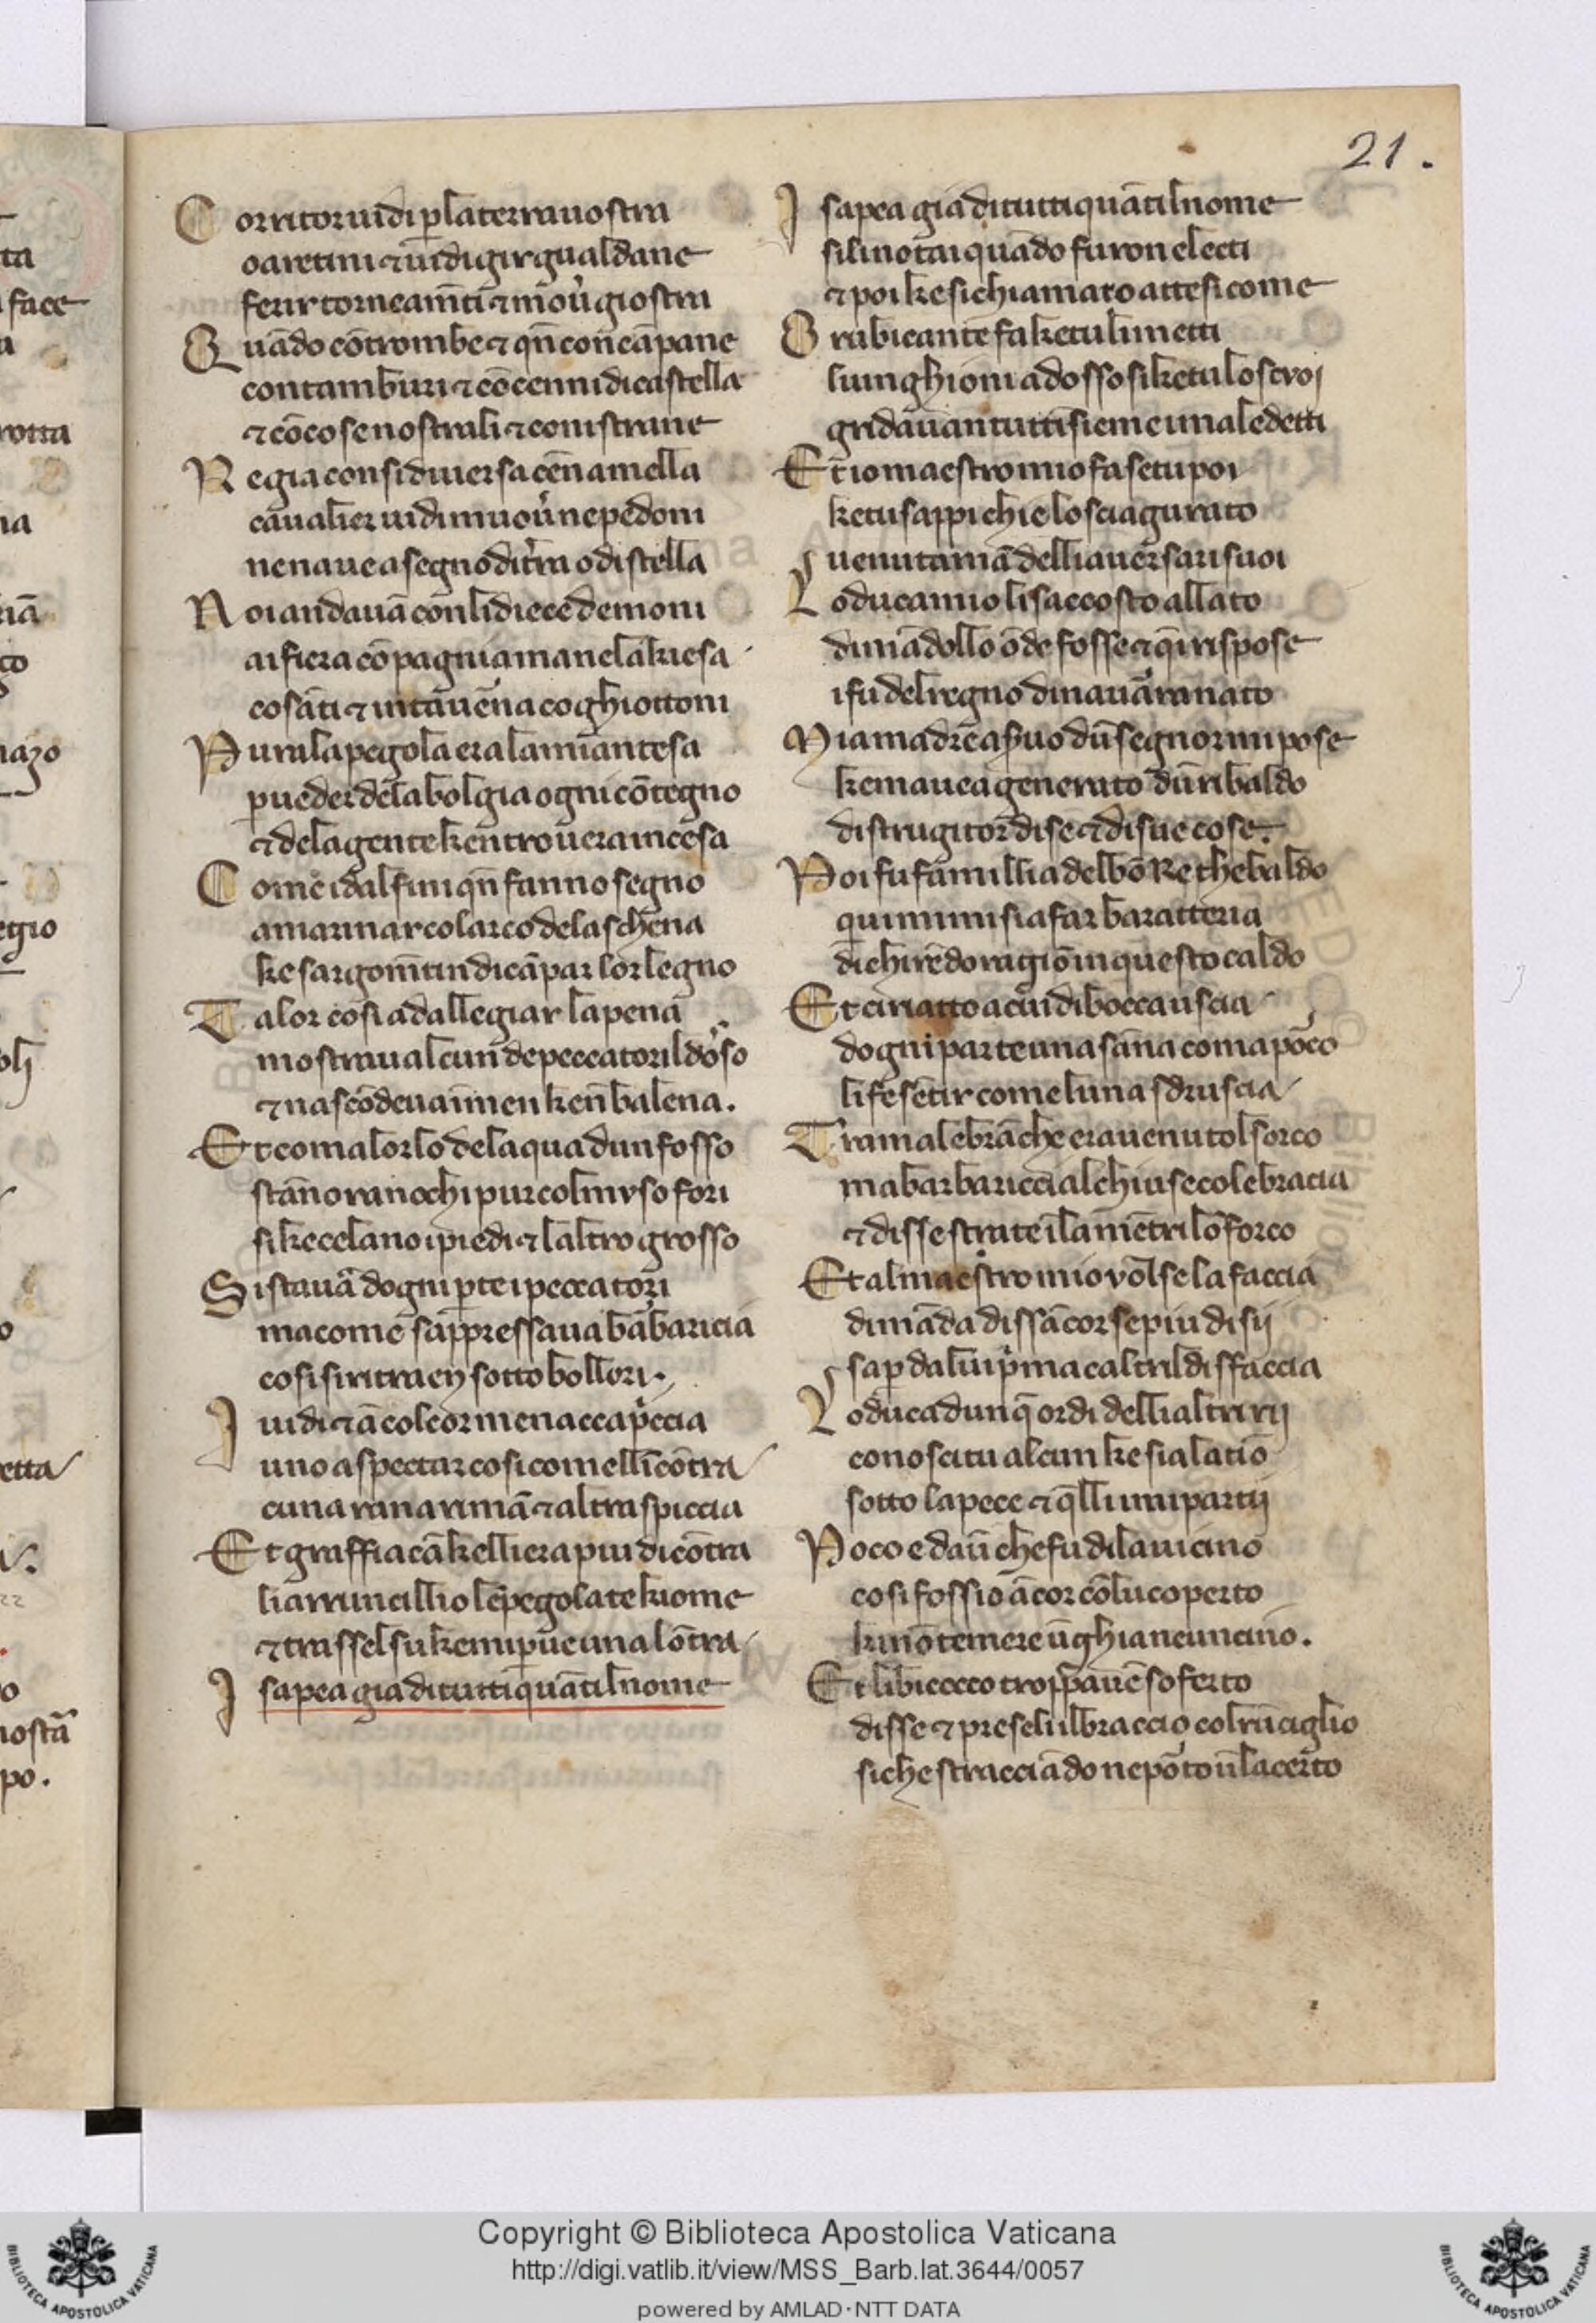 21.
Corritor uidi p̲ la terra uostra
o aretini ⁊ uidi gir gualdane
ferir torneamti ⁊ mou̓ giostra
Quādo cō trombe ⁊ qn̄ con cāpane
con tamburi ⁊ cō cenni di castella
⁊ cō cose nostrali ⁊ con istrane
Ne gia con si diuersa cēnamella
caualier uidi muou̓ ne pedoni
ne naue a segno di tr̓ra o di stella
Noi andauā con li diece demoni
ai fiera cōpagnia ma nela kiesa
co sāti ⁊ in tauēna co ghiottoni
Pur a la pegola era la mia ntesa
p̲ ueder dela bolgia ogni cōtegno
⁊ dela gente kentro uera incesa
Come i dalfini qn̄ fanno segno
a marinar co larco dela schena
ke sargomtin di cāpar lor legno
Talor cosi ad allegiar la pena
mostraualcun de peccatori l do̓so
⁊ nascōdeua i men ken balena.
Et coma lorlo delaqua dun fosso
stāno ranochi pur col muso fori
si ke celano i piedi ⁊ laltro grosso
Si stauā dogni p̲te i peccatori
ma come sappressaua ba̓baricia
cosi si ritraen sotto bollori.
I uidi ⁊ ācolcor men accap̓ccia
uno aspectar cosi comelli cōtra
cuna rana rimā ⁊ altra spiccia
Et graffiacā kelli era piu dicōtra
li arruncillio le̓pegolate kiome
⁊ trassel su ke mi p̲ue una lōtra
I sapea gia di tutti quāti l nome
I sapea gia di tutti quāti l nome
si li notai quādo furon electi
⁊ poi ke si chiamaro attesi come
O rubicante fa ke tu li metti
li unghioni a dosso si ke tu lo scroi
gridauan tutti sieme i maledetti
Et io maestro mio fa se tu poi
ke tu sappi chi e lo sciagurato
uenuto a mā delli auersari suoi
Lo duca mio li saccosto allato
dimādollo ōde fosse ⁊ q̄i rispose
i fu del regno di nauarra nato
Mia madre a s̓uo dū segnor mi pose
ke mauea generato dū ribaldo
distrugitor di se ⁊ di sue cose.
Poi fu famillia del bō Re thebaldo
qui mi misi a far baratteria
di chi rēdo ragiō in questo caldo
Et ciriatto a cui di bocca uscia
dogni parte una sāna coma po̓co
li fe sētir come luna sdruscia
Tra male brāche era uenuto l sorco
ma barbariccia l chiuse co le braccia
⁊ disse state ī la mētri lo forco
Et al maestro mio volse la faccia
dimāda dissācor se piu disij
sap̲ da lui p̓ma caltri l disfaccia
Lo duca dunq̄ or di delli altri rij
conosci tu alcun ke sia latio
sotto la pece ⁊ q̄lli i mi partij
Poco e da ū che fu di la uicino
cosi fossio ācor cō lu coperto
ki nō temere ūghia ne uncino.
Et libicocco tropp̲ auē soferto
disse ⁊ preseli l braccio col rūciglio
si che stracciādo ne po̓to ū lacerto
Copyright © Biblioteca Apostolica Vaticana
http://digi.vatlib.it/view/MSS_Barb.lat.3644/0057
powered by AMLAD·NTT DATA
BIBLIOTECA APOSTOLICA VATICANA
BIBLIOTECA APOSTOLICA VATICANA